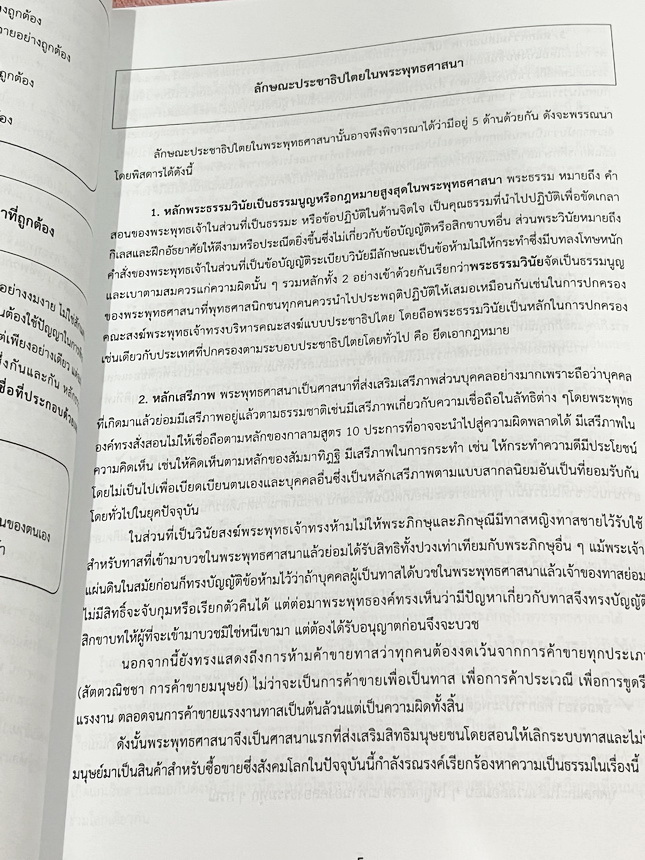 งถูกต้อง
วายอย่างถูกต้อง
ถูกต้อง
ต้อง
าที่ถูกต้อง
อย่างงมงาย ไม่ใช่
นต้องใช้ปัญญาในการ
ต่เพียงอย่างเดียว
ซึ่งกันและกัน
ชื่อที่ประกอบด้วย
นของตนเอง
ลักษณะประชาธิปไตยในพระพุทธศาสนา
ลักษณะประชาธิปไตยในพระพุทธศาสนานั้นอาจพึงพิจารณาได้ว่ามีอยู่ 5 ด้านด้วยกัน ดังจะพรรณนา
โดยพิสดารได้ดังนี้
1. หลักพระธรรมวินัยเป็นธรรมนูญหรือกฎหมายสูงสุดในพระพุทธศาสนา พระธรรม หมายถึง คำ
สอนของพระพุทธเจ้าในส่วนที่เป็นธรรมะ หรือข้อปฏิบัติในด้านจิตใจ เป็นคุณธรรมที่นำไปปฏิบัติเพื่อขัดเกลา
กิเลสและฝึกอัธยาศัยให้ดีงามหรือประณีตยิ่งขึ้นซึ่งไม่เกี่ยวกับข้อบัญญัติหรือสิกขาบทอื่น ส่วนพระวินัยหมายถึง
คำสั่งของพระพุทธเจ้าในส่วนที่เป็นข้อบัญญัติระเบียบวินัยมีลักษณะเป็นข้อห้ามไม่ให้กระทำซึ่งมีบทลงโทษหนัก
และเบาตามสมควรแก่ความผิดนั้น ๆ รวมหลักทั้ง 2 อย่างเข้าด้วยกันเรียกว่าพระธรรมวินัยจัดเป็นธรรมนูญ
ของพระพุทธศาสนาที่พุทธศาสนิกชนทุกคนควรนำไปประพฤติปฏิบัติให้เสมอเหมือนกันเช่นในการปกครอง
คณะสงฆ์พระพุทธเจ้าทรงบริหารคณะสงฆ์แบบประชาธิปไตย โดยถือพระธรรมวินัยเป็นหลักในการปกครอง
เช่นเดียวกับประเทศที่ปกครองตามระบอบประชาธิปไตยโดยทั่วไป คือ ยึดเอากฎหมาย
2. หลักเสรีภาพ พระพุทธศาสนาเป็นศาสนาที่ส่งเสริมเสรีภาพส่วนบุคคลอย่างมากเพราะถือว่าบุคคล
ที่เกิดมาแล้วย่อมมีเสรีภาพอยู่แล้วตามธรรมชาติเช่นมีเสรีภาพเกี่ยวกับความเชื่อถือในลัทธิต่าง ๆโดยพระพุทธ
องค์ทรงสั่งสอนไม่ให้เชื่อถือตามหลักของกาลามสูตร 10 ประการที่อาจจะนำไปสู่ความผิดพลาดได้ มีเสรีภาพใน
ความคิดเห็น เช่นให้คิดเห็นตามหลักของสัมมาทิฏฐิ มีเสรีภาพในการกระทำ เช่น ให้กระทำความดีมีประโยชน์
โดยไม่เป็นไปเพื่อเบียดเบียนตนเองและบุคคลอื่นซึ่งเป็นหลักเสรีภาพตามแบบสากลนิยมอันเป็นที่ยอมรับกัน
โดยทั่วไปในยุคปัจจุบัน
ในส่วนที่เป็นวินัยสงฆ์พระพุทธเจ้าทรงห้ามไม่ให้พระภิกษุและภิกษุณีมีทาสหญิงทาสชายไว้รับใช้
สำหรับทาสที่เข้ามาบวชในพระพุทธศาสนาแล้วย่อมได้รับสิทธิทั้งปวงเท่าเทียมกับพระภิกษุอื่น ๆ แม้พระเจ้า
แผ่นดินในสมัยก่อนก็ทรงบัญญัติข้อห้ามไว้ว่าถ้าบุคคลผู้เป็นทาสได้บวชในพระพุทธศาสนาแล้วเจ้าของทาสย่อม
ไม่มีสิทธิ์จะจับกุมหรือเรียกตัวคืนได้ แต่ต่อมาพระพุทธองค์ทรงเห็นว่ามีปัญหาเกี่ยวกับทาสจึงทรงบัญญัติ
สิกขาบทให้ผู้ที่จะเข้ามาบวชมิใช่หนีเขามา แต่ต้องได้รับอนุญาตก่อนจึงจะบวช
นอกจากนี้ยังทรงแสดงถึงการห้ามค้าขายทาสว่าทุกคนต้องงดเว้นจากการค้าขายทุกประเภ
(สัตตวณิชชา การค้าขายมนุษย์) ไม่ว่าจะเป็นการค้าขายเพื่อเป็นทาส เพื่อการค้าประเวณี เพื่อการขูดรี
แรงงาน ตลอดจนการค้าขายแรงงานทาสเป็นต้นล้วนแต่เป็นความผิดทั้งสิ้น
ดังนั้นพระพุทธศาสนาจึงเป็นศาสนาแรกที่ส่งเสริมสิทธิมนุษยชนโดยสอนให้เลิกระบบทาสและไม่
มนุษย์มาเป็นสินค้าสำหรับซื้อขายซึ่งสังคมโลกในปัจจุบันนี้กำลังรณรงค์เรียกร้องหาความเป็นธรรมในเรื่องนี้